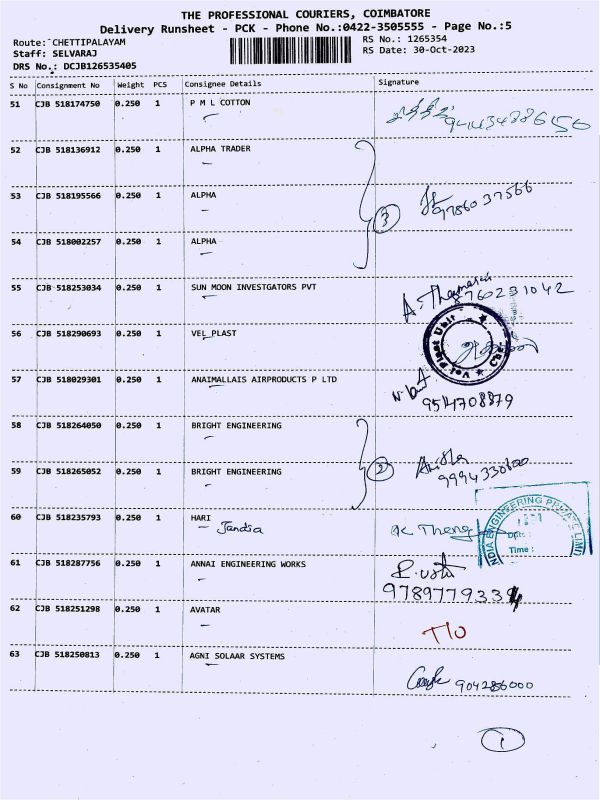 THE PROFESSIONAL COURIERS, COIMBATORE
Delivery Runsheet - PCK - Phone No.:0422-3505555 - Page No.:5
Route: CHETTIPALAYAM
RS No.: 1265354
Staff: SELVARAJ
RS Date: 30-Oct-2023
DRS No.: DCJB126535405
S No Consignment No Weight PCS Consignee Details Signature
51 CJB 518174750 0.250 1 P M L COTTON
52 CJB 518136912 0.250 1 ALPHA TRADER
53 CJB 518195566 0.250 1 ALPHA 9786037566
3
54 CJB 518002257 0.250 1 ALPHA
55 CJB 518253034 0.250 1 SUN MOON INVESTGATORS PVT 8760231042
56 CJB 518290693 0.250 1 VEL PLAST
57 CJB 518029301 0.250 1 ANAIMALLAIS AIRPRODUCTS P LTD
9547708879
58 CJB 518264050 0.250 1 BRIGHT ENGINEERING
2
59 CJB 518265052 0.250 1 BRIGHT ENGINEERING
60 CJB 518235793 0.250 1 HARI
ENGINEERING PRIVATE LIMI
Date :
Time :
61 CJB 518287756 0.250 1 ANNAI ENGINEERING WORKS
9789779334
62 CJB 518251298 0.250 1 AVATAR
63 CJB 518250813 0.250 1 AGNI SOLAAR SYSTEMS
904286000
1